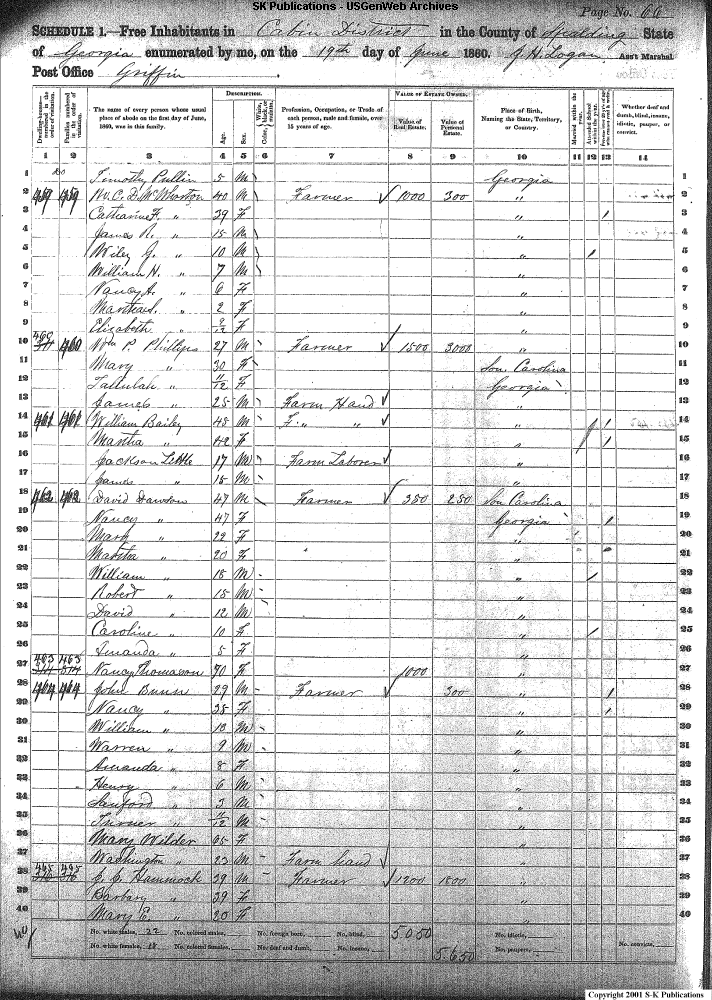 SK Publications - USGenWeb Archives
Page No. 66
SCHEDULE 1.—Free Inhabitants in Cabin District in the County of Spalding State
of Georgia enumerated by me, on the 19th day of June 1860. J. H. Logan Ass't Marshal
Post Office Griffin
Dwelling-houses—numbered in the order of visitation. Families numbered in the order of visitation. The name of every person whose usual place of abode on the first day of June, 1860, was in this family. DESCRIPTION. Age. Sex. Color, White, black, or mulatto. Profession, Occupation, or Trade of each person, male and female, over 15 years of age. VALUE OF ESTATE OWNED. Value of Real Estate. Value of Personal Estate. Place of Birth, Naming the State, Territory, or Country. Married within the year. Attended School within the year. Whether deaf and dumb, blind, insane, idiotic, pauper, or convict.
1 2 3 4 5 6 7 8 9 10 11 12 13 14
1 Timothy Pullin 5 M Georgia 1
2 459 459 Wm. C. D. McWhorton 40 M Farmer 1000 300 " 2
3 Catharine F. " 39 F " / 3
4 James R. " 15 M " 4
5 Wiley G. " 10 M " / 5
6 William H. " 7 M " 6
7 Nancy A. " 6 F " 7
8 " 2 F " 8
9 Elizabeth " 9/12 F " 9
10 460 460 Wm P. Phillips 27 M Farmer 1500 3000 " 10
11 Mary " 30 F Sou Carolina 11
12 Tallulah " 11/12 F Georgia 12
13 James " 25 M Farm Hand " 13
14 461 461 William Bailey 48 M F. " " " / / 14
15 Martha " 42 F " / / 15
16 Jackson Little 17 M Farm Laborer " 16
17 James " 15 M " 17
18 462 462 David Dawson 47 M Farmer 350 250 Sou Carolina 18
19 Nancy " 47 F Georgia / 19
20 Mary " 22 F " 20
21 Martha " 20 F " 21
22 William " 18 M " / 22
23 Robert " 15 M " 23
24 David " 12 M " 24
25 Caroline " 10 F " / 25
26 Amanda " 5 F " 26
27 463 463 Nancy Thomasson 70 F 1000 " 27
28 464 464 John Bunn 29 M Farmer 300 " / 28
29 Nancy " 38 F " / 29
30 William " 10 M " 30
31 Warren " 9 M " 31
32 Amanda " 8 F " 32
33 Henry " 6 M " 33
34 Sanford " 3 M " 34
35 Turner " 11/12 M " 35
36 Mary Wilder 65 F " 36
37 Washington " 23 M Farm hand " 37
38 465 465 Hammock 39 M Farmer 1200 1800 " 38
39 Barbary " 39 F " 39
40 Mary E. " 20 F " 40
No. white males, 22 No. colored males, No. foreign born, No. blind, 5050 No. idiotic,
No. white females, 18 No. colored females, No. deaf and dumb, No. insane, 5650 No. paupers, No. convicts,
Copyright 2001 S-K Publications